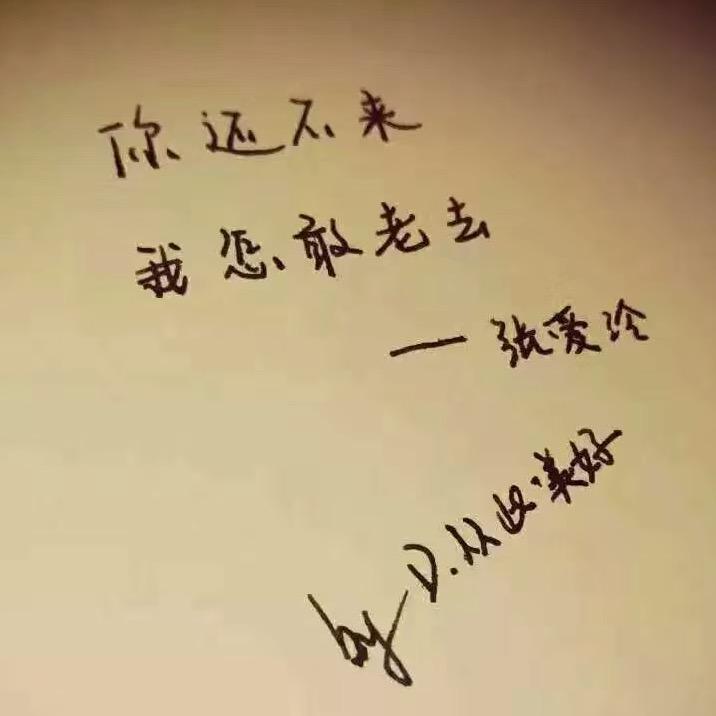 你还不来
我怎敢老去
— 张爱玲
by D.从此美好